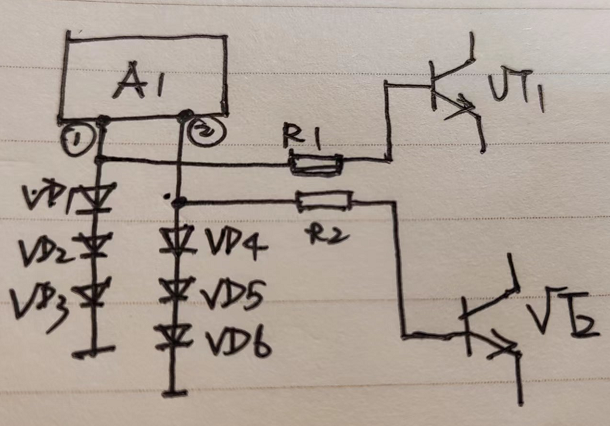 A1
① ②
R1
VT1
VD1
R2
VD2 VD4
VD3 VD5
VT2
VD6